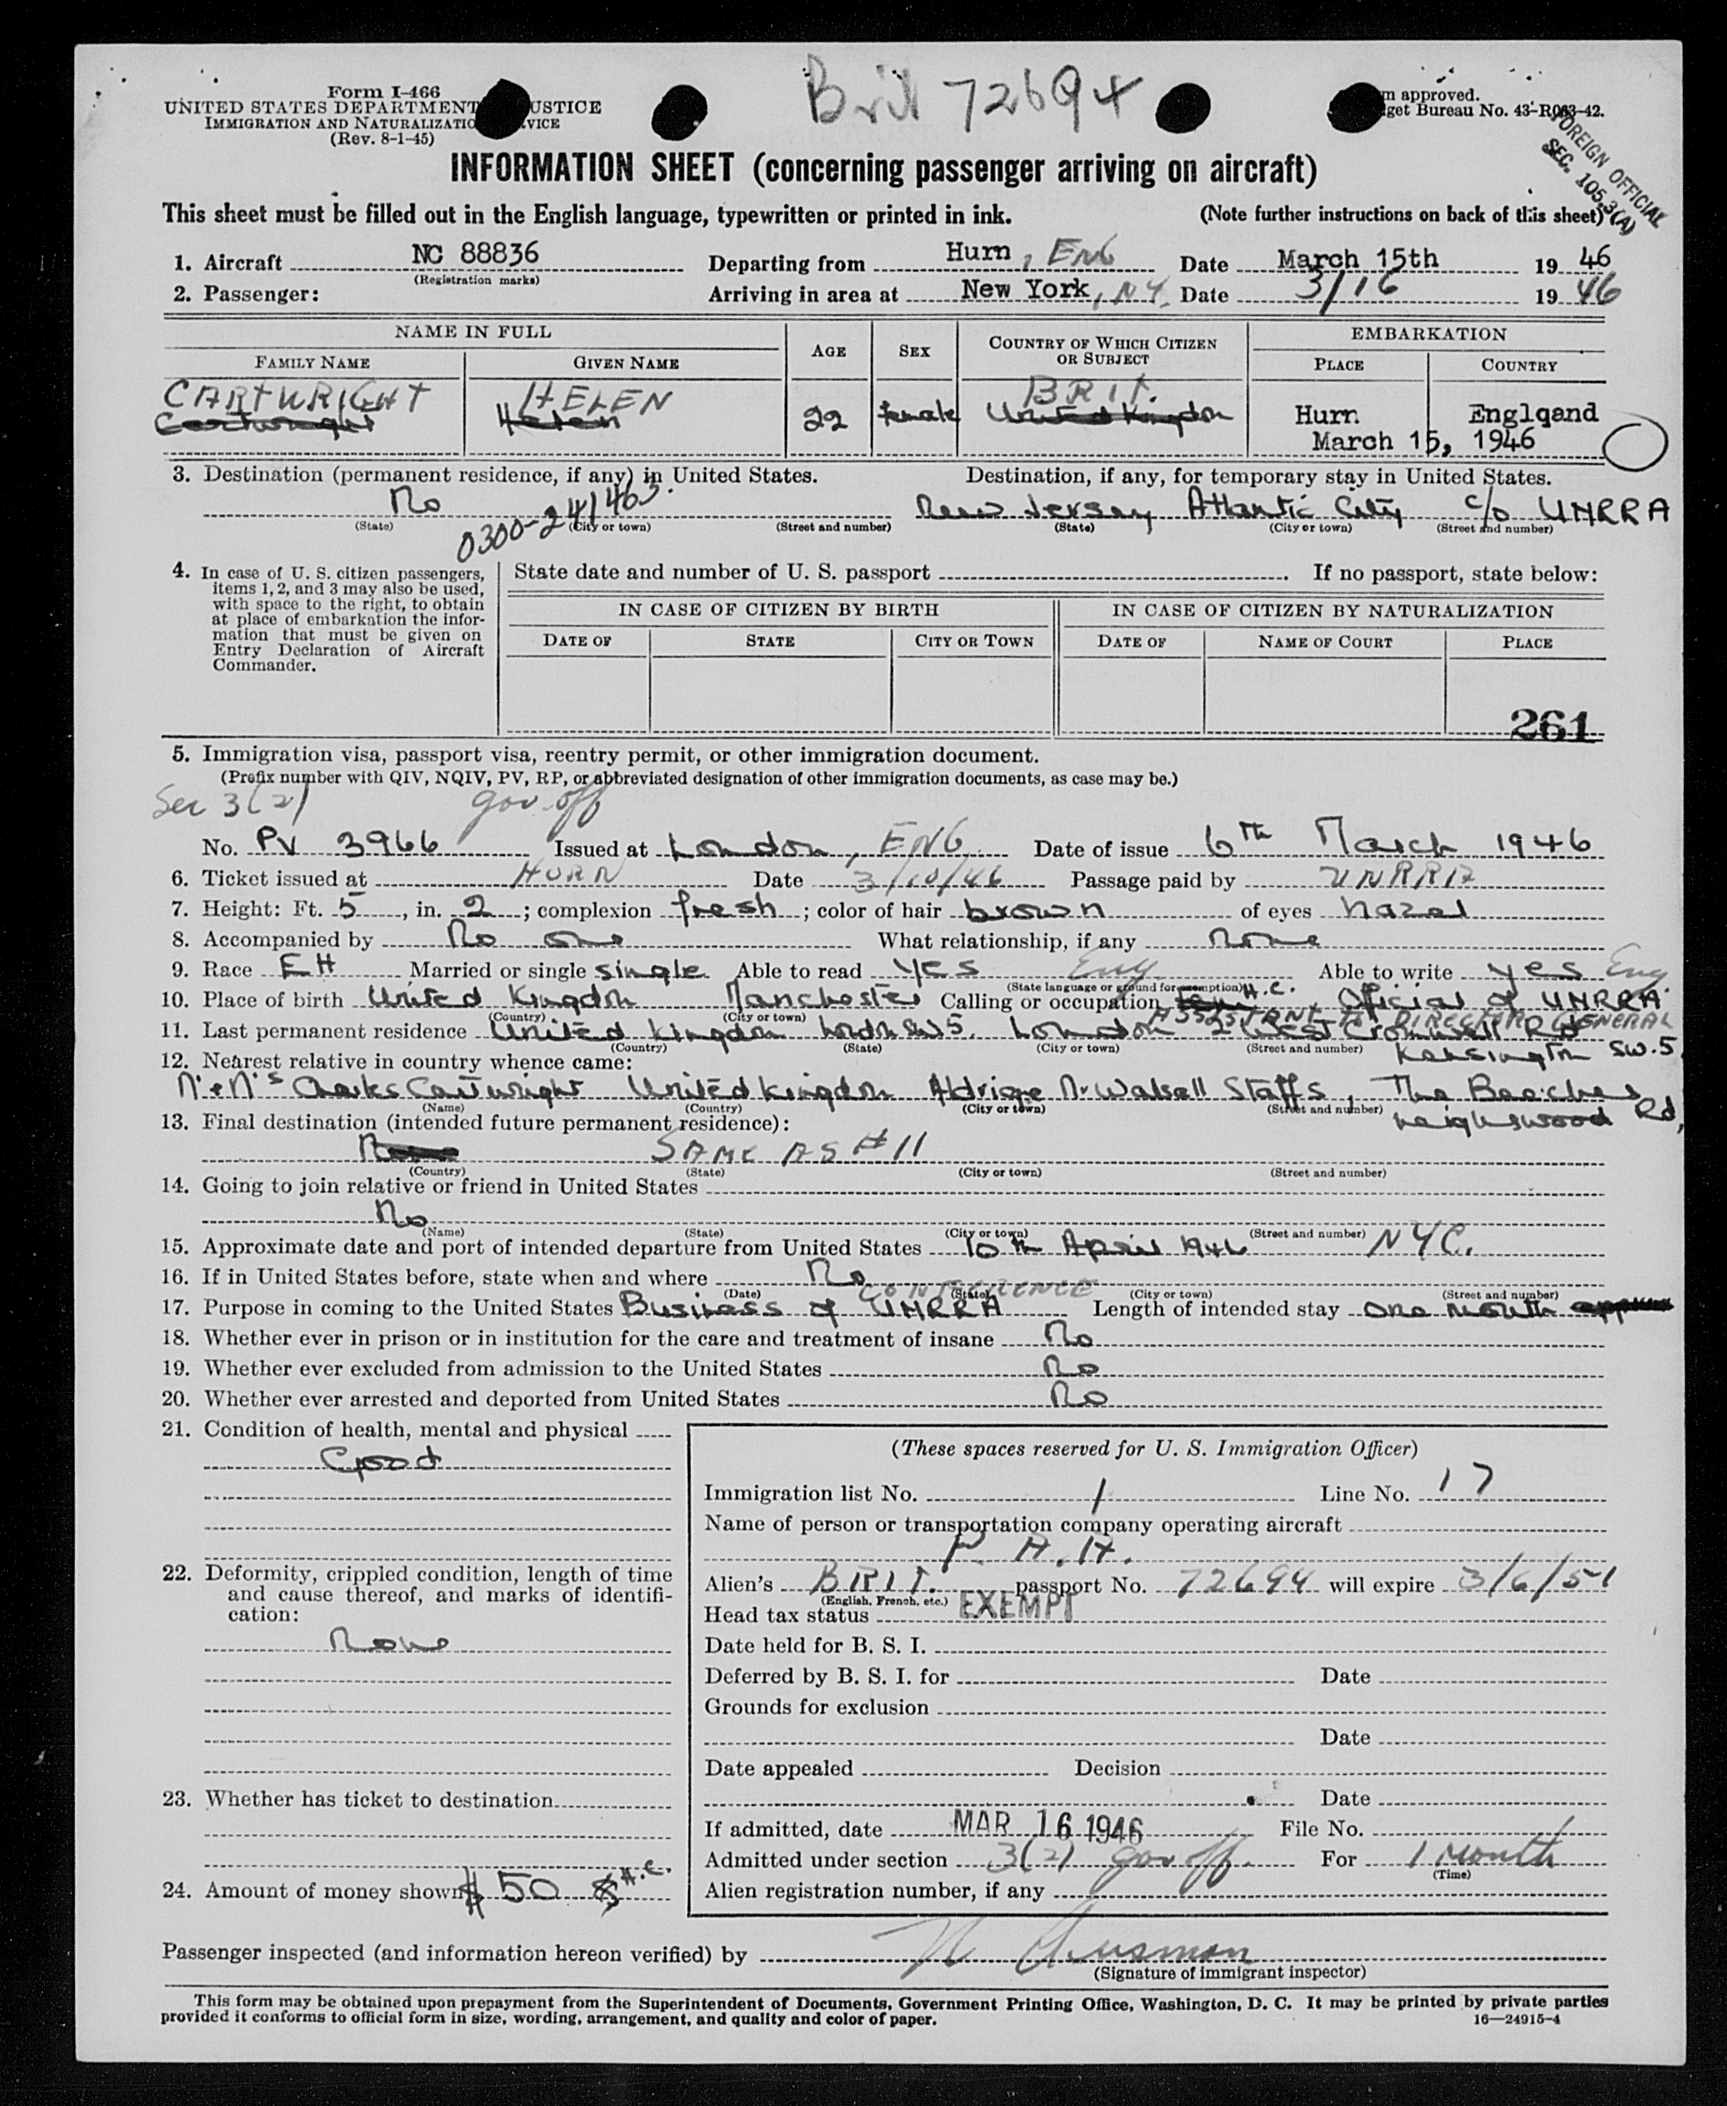 Brit 72694
Form I-466
UNITED STATES DEPARTMENT USTICE
IMMIGRATION AND NATURALIZATIO VICE
(Rev. 8-1-45)
m approved.
get Bureau No. 43-R063-42.
FOREIGN OFFICIAL
SEC. 105.3(A)
INFORMATION SHEET (concerning passenger arriving on aircraft)
This sheet must be filled out in the English language, typewritten or printed in ink. (Note further instructions on back of this sheet)
1. Aircraft NC 88836 Departing from Hurn, ENG Date March 15th 19 46
(Registration marks)
2. Passenger: Arriving in area at New York, NY. Date 3/16 19 46
NAME IN FULL AGE SEX COUNTRY OF WHICH CITIZEN OR SUBJECT EMBARKATION
FAMILY NAME GIVEN NAME PLACE COUNTRY
CARTWRIGHT HELEN BRIT.
Cartwright Helen 22 female United Kingdom Hurn Englqand
March 15, 1946
3. Destination (permanent residence, if any) in United States. Destination, if any, for temporary stay in United States.
No New Jersey Atlantic City c/o UNRRA
(State) (City or town) (Street and number) (State) (City or town) (Street and number)
0300-24/463.
4. In case of U. S. citizen passengers, items 1, 2, and 3 may also be used, with space to the right, to obtain at place of embarkation the information that must be given on Entry Declaration of Aircraft Commander.
State date and number of U. S. passport . If no passport, state below:
IN CASE OF CITIZEN BY BIRTH IN CASE OF CITIZEN BY NATURALIZATION
DATE OF STATE CITY OR TOWN DATE OF NAME OF COURT PLACE
261
5. Immigration visa, passport visa, reentry permit, or other immigration document.
(Prefix number with QIV, NQIV, PV, RP, or abbreviated designation of other immigration documents, as case may be.)
Sec 3(2) gov-off
No. PV 3966 Issued at London, ENG. Date of issue 6th March 1946
6. Ticket issued at HURN Date 3/10/46 Passage paid by UNRRA
7. Height: Ft. 5, in. 2; complexion fresh; color of hair brown of eyes hazel
8. Accompanied by No one What relationship, if any none
9. Race EH Married or single single Able to read yes Eng Able to write yes Eng
(State language or ground for exemption) H.C.
10. Place of birth United Kingdom Manchester Calling or occupation , Official of UNRRA.
(Country) (City or town) ASSISTANT TO DIRECTOR GENERAL
11. Last permanent residence United Kingdom London SW5. London 2 West Cromwell Rd
(Country) (State) (City or town) (Street and number) Kensington SW.5
12. Nearest relative in country whence came:
Mr & Mrs Charles Cartwright United Kingdom Aldridge Nr Walsall Staffs, The Beeches
(Name) (Country) (City or town) (Street and number) Leighswood Rd,
13. Final destination (intended future permanent residence):
SAME AS #11
(Country) (State) (City or town) (Street and number)
14. Going to join relative or friend in United States
No
(Name) (State) (City or town) (Street and number)
15. Approximate date and port of intended departure from United States 10th April 1946 NYC.
16. If in United States before, state when and where No
(Date) (State) (City or town) (Street and number)
CONFERENCE
17. Purpose in coming to the United States Business of UNRRA Length of intended stay one month
18. Whether ever in prison or in institution for the care and treatment of insane No
19. Whether ever excluded from admission to the United States No
20. Whether ever arrested and deported from United States No
21. Condition of health, mental and physical
Good
22. Deformity, crippled condition, length of time and cause thereof, and marks of identification:
None
23. Whether has ticket to destination
24. Amount of money shown $ 50 $ H.C.
(These spaces reserved for U. S. Immigration Officer)
Immigration list No. 1 Line No. 17
Name of person or transportation company operating aircraft
P.A.A.
Alien's BRIT. passport No. 72694 will expire 3/6/51
(English, French, etc.)
Head tax status EXEMPT
Date held for B. S. I.
Deferred by B. S. I. for Date
Grounds for exclusion
Date
Date appealed Decision
Date
If admitted, date MAR 16 1946 File No.
Admitted under section 3(2) gov off. For 1 month
(Time)
Alien registration number, if any
Passenger inspected (and information hereon verified) by
(Signature of immigrant inspector)
This form may be obtained upon prepayment from the Superintendent of Documents, Government Printing Office, Washington, D. C. It may be printed by private parties
provided it conforms to official form in size, wording, arrangement, and quality and color of paper. 16—24915-4